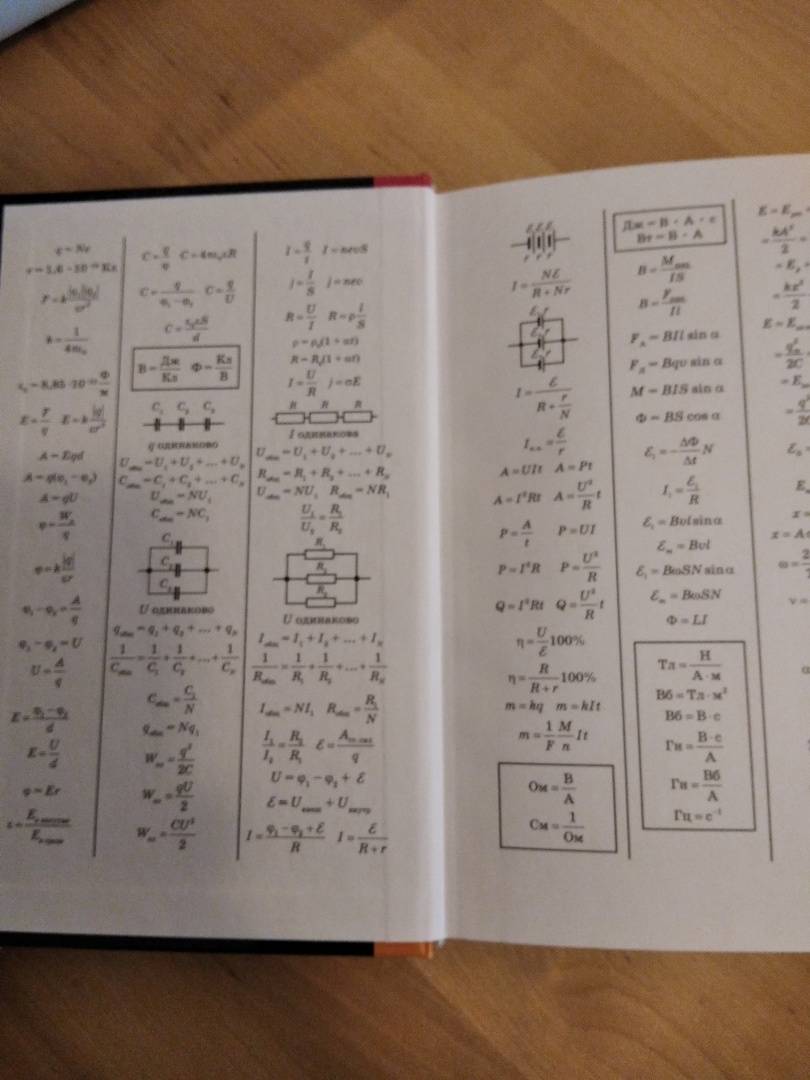 q = Ne
e = 1,6 · 10⁻¹⁹ Кл
F = k |q₁||q₂| / εr²
k = 1 / 4πε₀
ε₀ = 8,85 · 10⁻¹² Ф/м
E = F/q   E = k |q| / εr²
A = Eqd
A = q(φ₁ − φ₂)
A = qU
φ = Wₚ/q
φ = k |q| / εr
φ₁ − φ₂ = A/q
φ₁ − φ₂ = U
U = A/q
E = (φ₁ − φ₂)/d
E = U/d
φ = Er
C = q/φ   C = 4πε₀εR
C = q/(φ₁ − φ₂)   C = q/U
C = ε₀εS/d
В = Дж/Кл   Ф = Кл/В
C₁ C₂ C₃
q одинаково
Uобщ = U₁ + U₂ + ... + U_N
Uобщ = NU₁
U одинаково
qобщ = q₁ + q₂ + ... + q_N
1/Cобщ = 1/C₁ + 1/C₂ + ... + 1/C_N
Cобщ = C₁/N
qобщ = Nq₁
Wэл = q²/2C
Wэл = qU/2
Wэл = CU²/2
I = q/t   I = nevS
j = I/S   j = nev
R = U/I   R = ρ l/S
ρ = ρ₀(1 + αt)
R = R₀(1 + αt)
I = U/R   j = σE
R R R
I одинакова
Uобщ = U₁ + U₂ + ... + U_N
Rобщ = R₁ + R₂ + ... + R_N
Uобщ = NU₁   Rобщ = NR₁
U₁/U₂ = R₁/R₂
R₁
R₂
R₃
U одинаково
Iобщ = I₁ + I₂ + ... + I_N
1/Rобщ = 1/R₁ + 1/R₂ + ... + 1/R_N
Iобщ = NI₁   Rобщ = R₁/N
I₁/I₂ = R₂/R₁   ℰ = Aст.сил/q
U = φ₁ − φ₂ + ℰ
ℰ = Uвнеш + Uвнутр
I = (φ₁ − φ₂ + ℰ)/R   I = ℰ/(R + r)
I = Nℰ/(R + Nr)
I = ℰ/(R + r/N)
Iк.з. = ℰ/r
A = UIt   A = Pt
A = I²Rt   A = U²/R t
P = A/t   P = UI
P = I²R   P = U²/R
Q = I²Rt   Q = U²/R t
η = U/ℰ 100%
η = R/(R + r) 100%
m = kq   m = kIt
m = 1/F M/n It
Ом = В/А
См = 1/Ом
Дж = В · А · с
Вт = В · А
B = Mmax/IS
B = Fmax/Il
F_A = BIl sin α
F_Л = Bqv sin α
M = BIS sin α
Φ = BS cos α
ℰᵢ = −ΔΦ/Δt N
Iᵢ = ℰᵢ/R
ℰᵢ = Bvl sin α
ℰₘ = Bvl
ℰᵢ = BωSN sin α
ℰₘ = BωSN
Φ = LI
Тл = Н/(А · м)
Вб = Тл · м²
Вб = В · с
Гн = В · с/А
Гн = Вб/А
Гц = с⁻¹